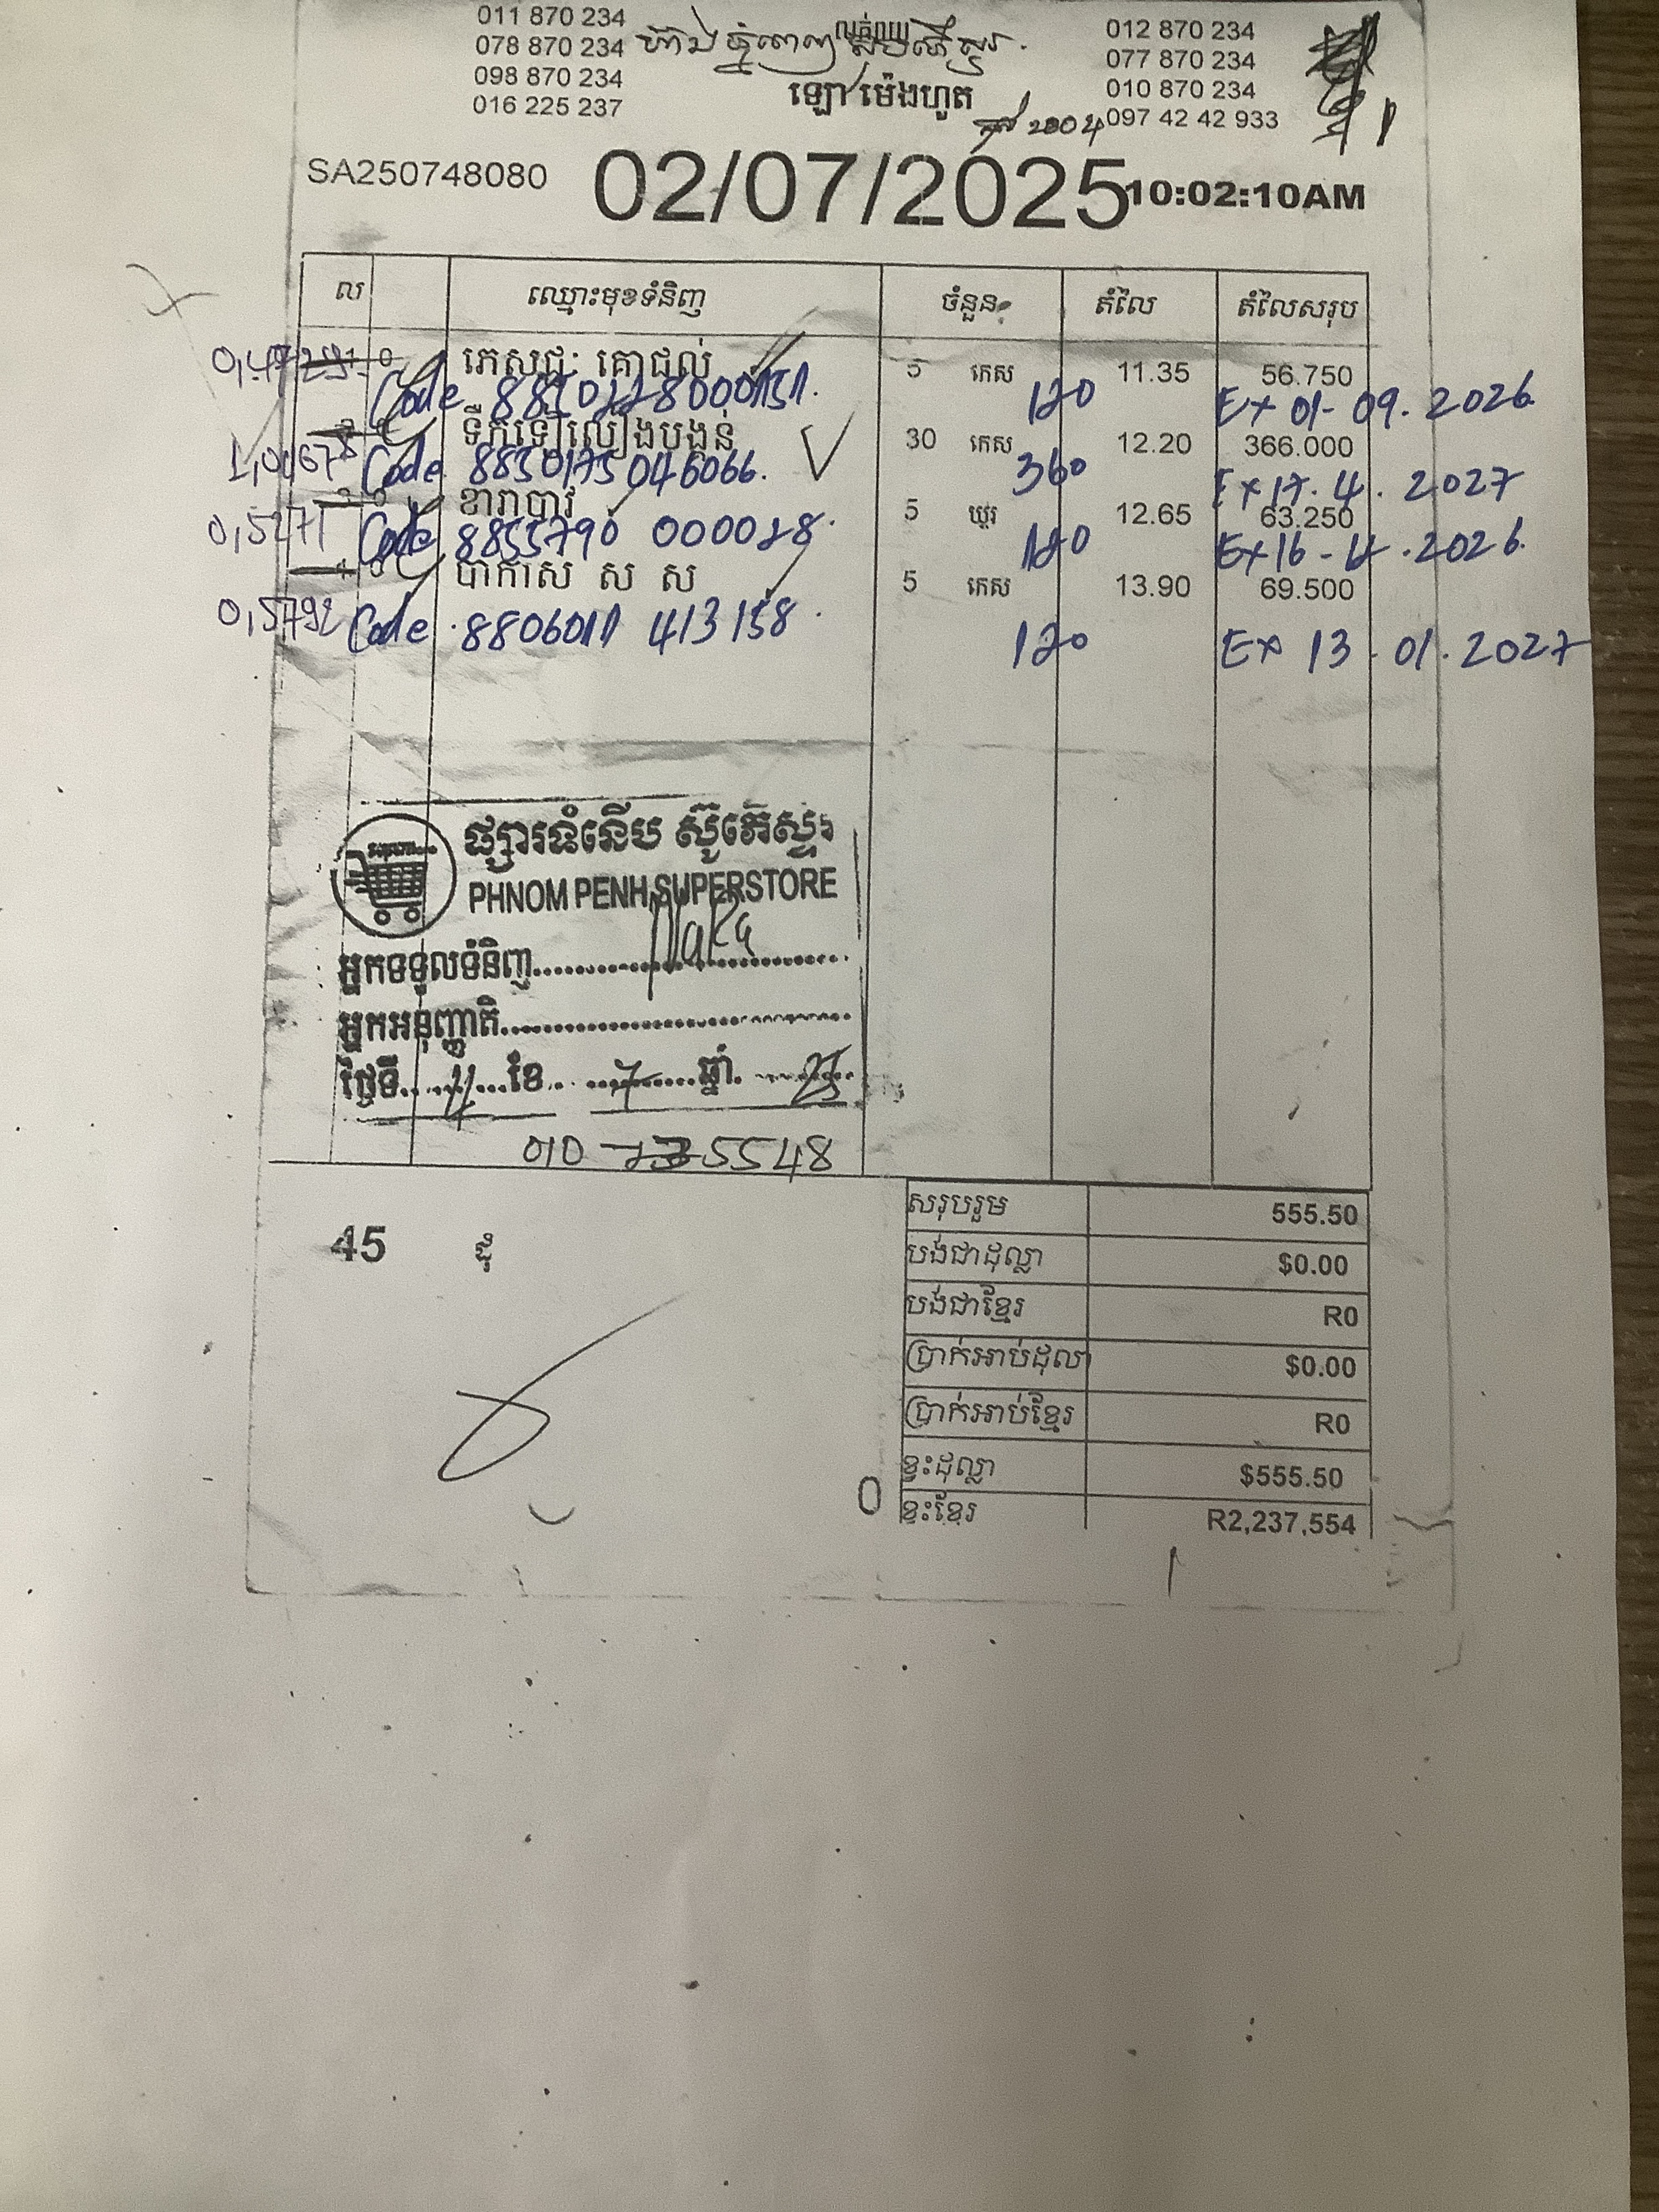 011 870 234
078 870 234
098 870 234
016 225 237
លក់ឈុ
ឡោ ម៉េងហួត
2004
012 870 234
077 870 234
010 870 234
097 42 42 933
SA250748080 02/07/2025 10:02:10AM
ល ឈ្មោះមុខទំនិញ ចំនួន តំលៃ តំលៃសរុប
ភេសជ្ជៈ គោជល់ 5 កេស 11.35 56.750
Code 8850228000151. 120 Ex 01-09.2026
ទឹកទៀលៀងបង្គន់ 30 កេស 12.20 366.000
1,0167 Code 8850175046066. 360 Ex 17.4.2027
ខារាបាវ 5 យួរ 12.65 63.250
0,5271 Code 8855790 000028. 120 Ex 16-4.2026
បាកាស ស ស 5 កេស 13.90 69.500
0,5792 Code 8806011 413158. 120 Ex 13.01.2027
ផ្សារទំនើប ស៊ូភើស្ទរ
PHNOM PENH SUPERSTORE
អ្នកទទួលទំនិញ
អ្នកអនុញ្ញាតិ
ថ្ងៃទី 4 ខែ 7 ឆ្នាំ 25
010 5548
45 ដុំ
សរុបរួម 555.50
បង់ជាដុល្លា $0.00
បង់ជាខ្មែរ R0
ប្រាក់អាប់ដុលា $0.00
ប្រាក់អាប់ខ្មែរ R0
ខ្វះដុល្លា $555.50
0 ខ្វះខ្មែរ R2,237,554